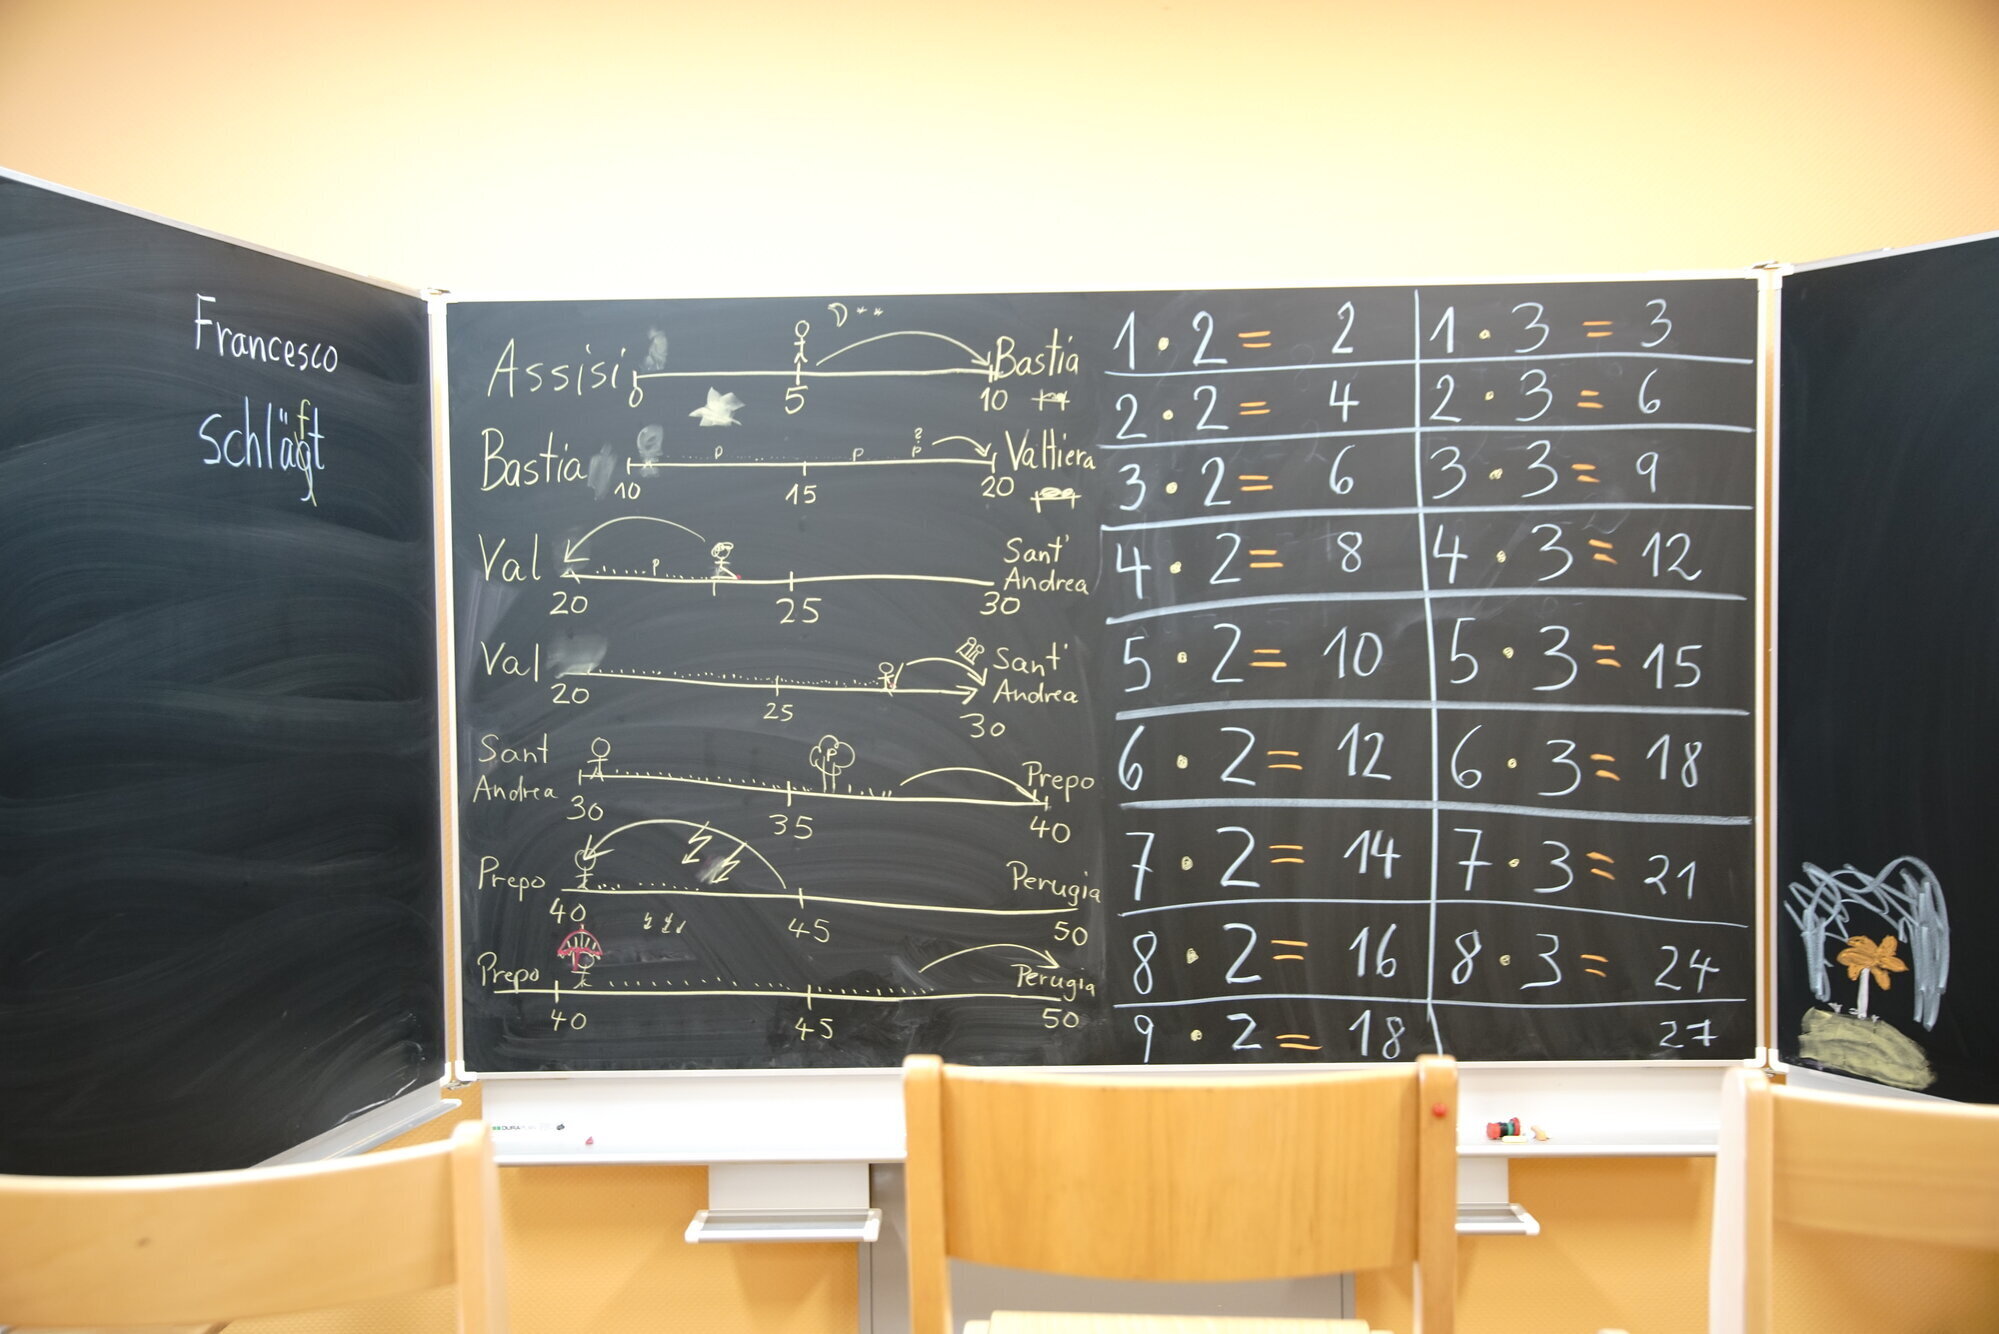 Francesco
schläft
Assisi 0 5 10 Bastia
Bastia 10 15 20 Valtiera
P P ? P
Val 20 25 30 Sant' Andrea
P
Val 20 25 30 Sant' Andrea
Sant Andrea 30 35 40 Prepo
P
Prepo 40 45 50 Perugia
Prepo 40 45 50 Perugia
1 · 2 = 2
2 · 2 = 4
3 · 2 = 6
4 · 2 = 8
5 · 2 = 10
6 · 2 = 12
7 · 2 = 14
8 · 2 = 16
9 · 2 = 18
1 · 3 = 3
2 · 3 = 6
3 · 3 = 9
4 · 3 = 12
5 · 3 = 15
6 · 3 = 18
7 · 3 = 21
8 · 3 = 24
27